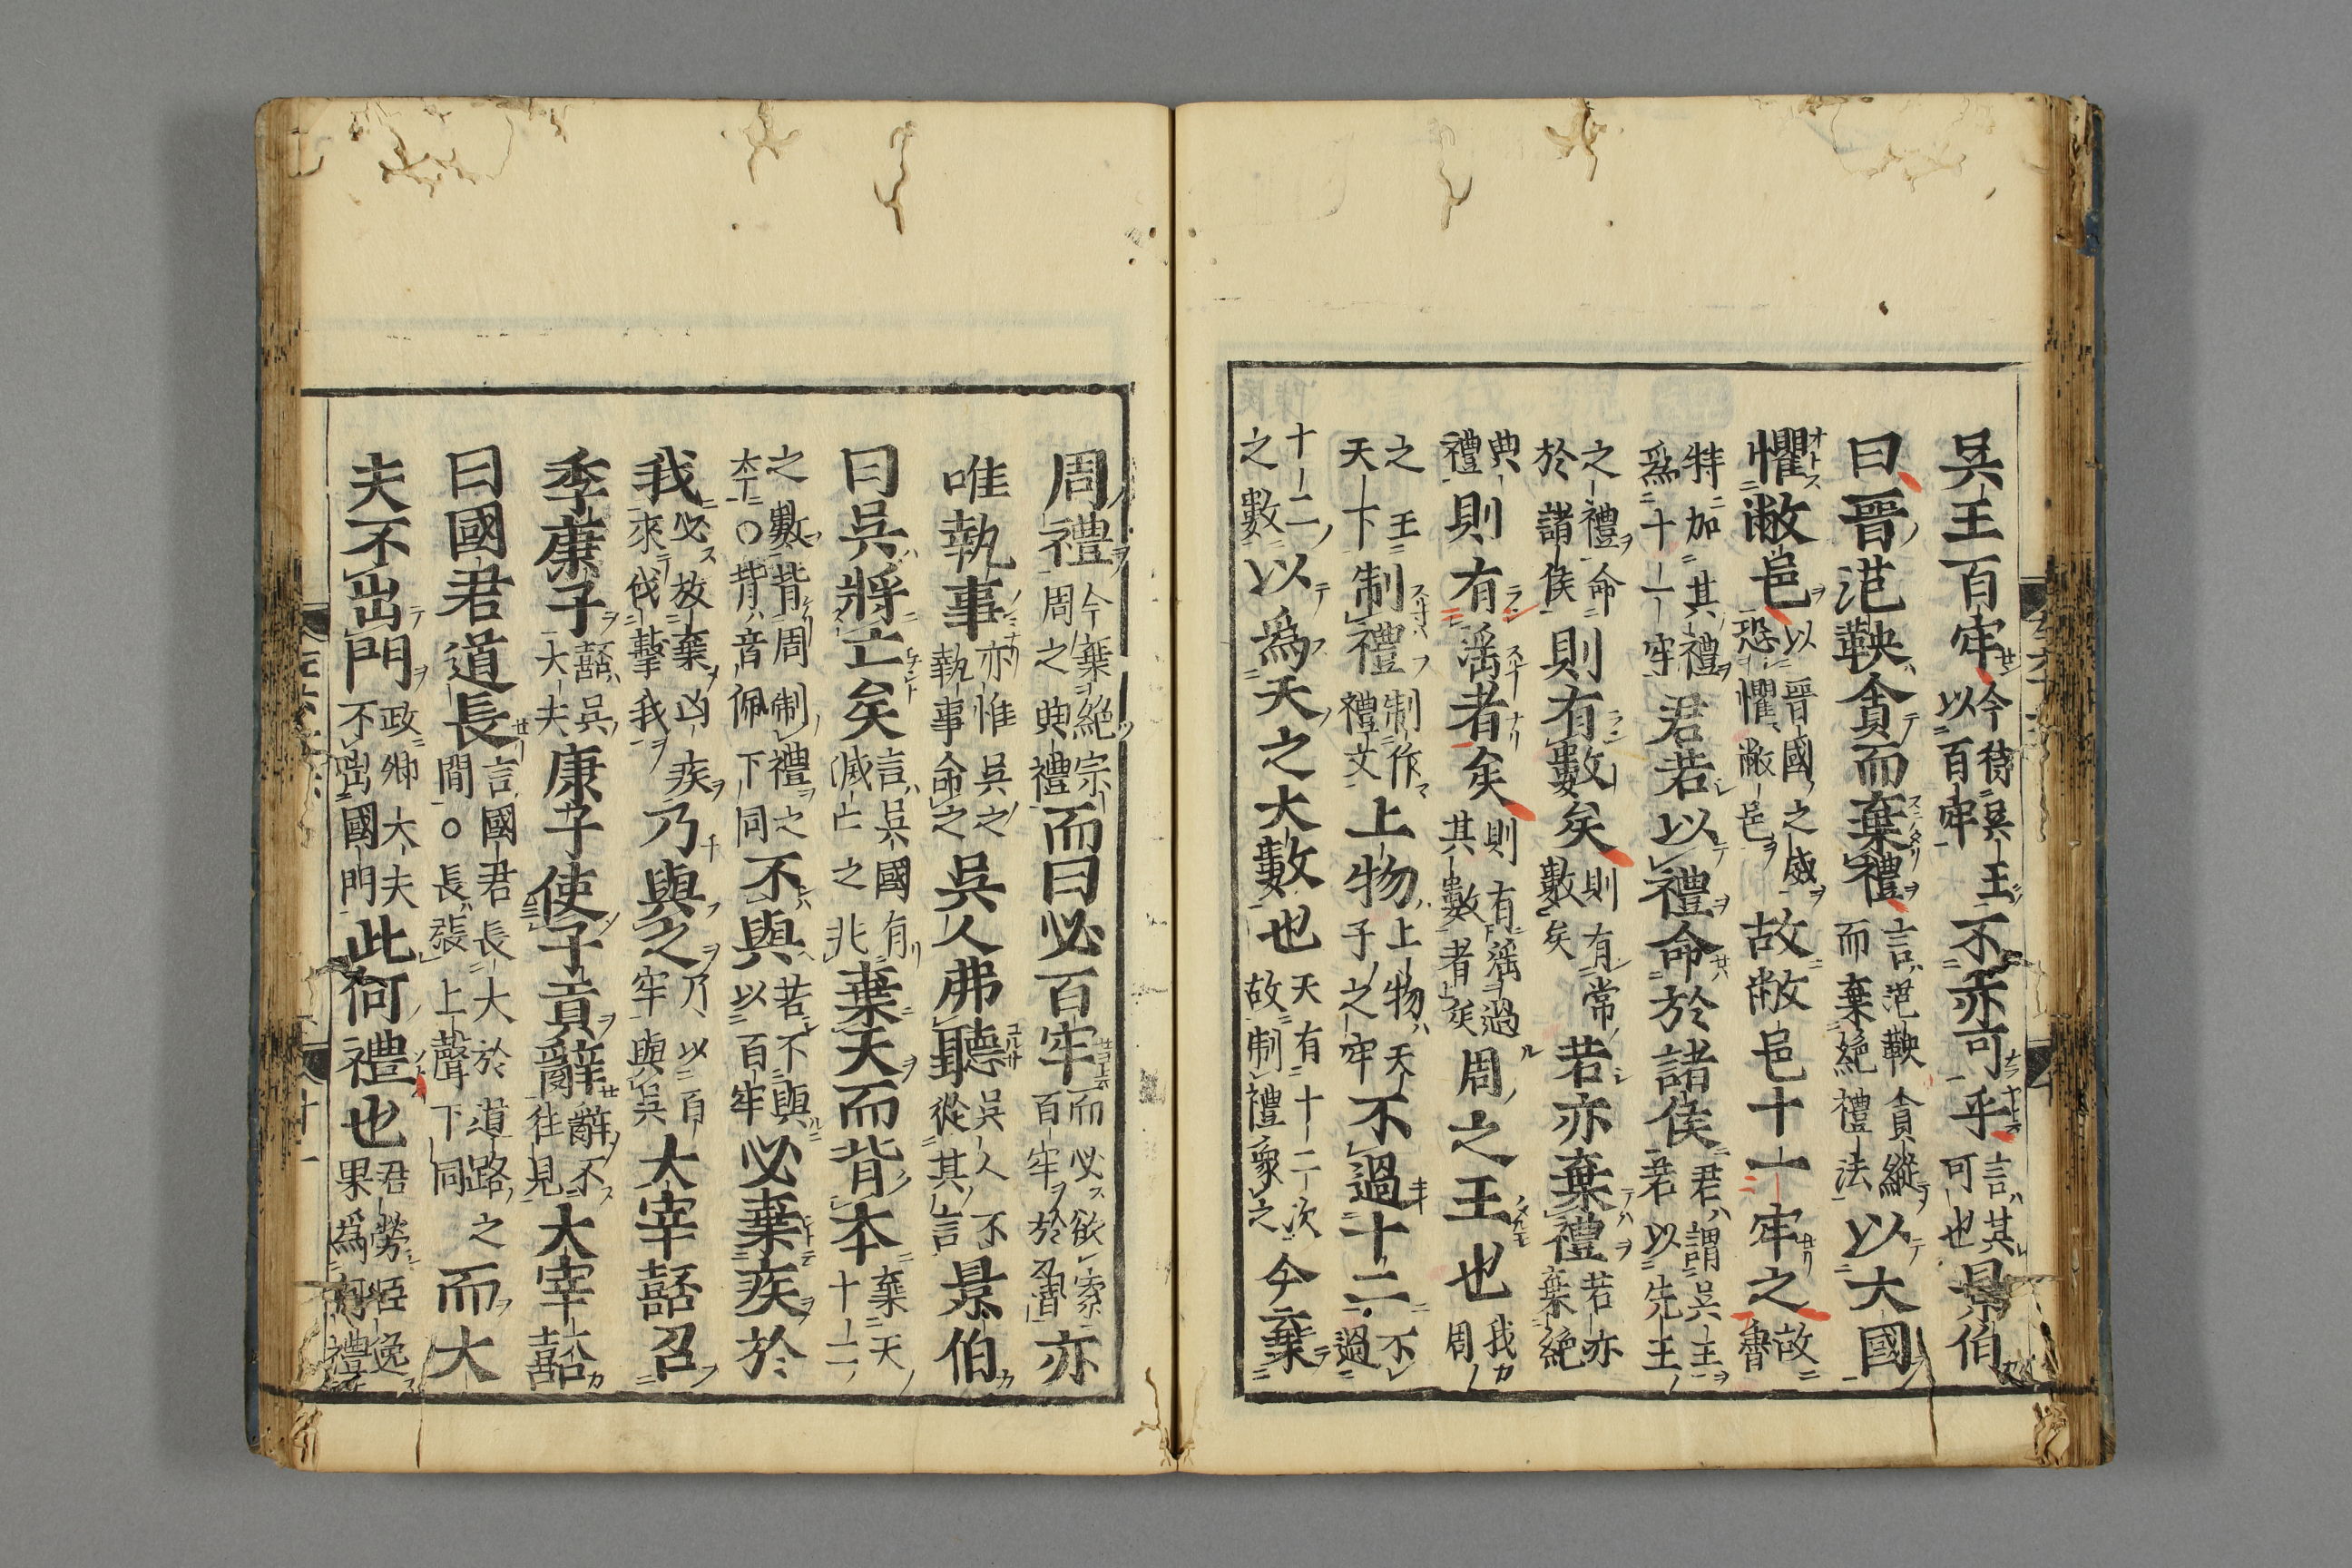 吳王百牢今待吳王以百牢不亦可乎言其可也景伯
曰晉范鞅貪而棄禮言范鞅貪縱而棄絕禮法以大國
懼敝邑以晉國之威恐懼敝邑故敝邑十一牢之故魯
特加其禮爲十一牢君若以禮命於諸侯君謂吳王君以先王
之禮命於諸侯則有數矣則有常數矣若亦棄禮若亦棄絕
典禮則有淫者矣則有淫過其數者矣周之王也我周
之王天下制禮制作禮文上物上物天子之牢不過十二不過
十二之數以爲天之大數也天有十二次故制禮象之今棄
周禮今棄絕宗周之典禮而曰必百牢而必欲索百牢於魯亦
唯執事亦惟吳之執事命之吳人弗聽吳人不從其言景伯
曰吳將亡矣言吳國有滅亡之兆棄天而背本棄天十二
之數背周制禮之本○背音佩下同不與若不與以百牢必棄疾於
我必放棄凶疾來伐擊我乃與之乃以百牢與吳大宰嚭召
季康子嚭吳大夫康子使子貢辭辭不往見大宰嚭
曰國君道長言國君長大於道路之間○長張上聲下同而大
夫不出門政卿大夫不出國門此何禮也君勞臣逸果爲何禮